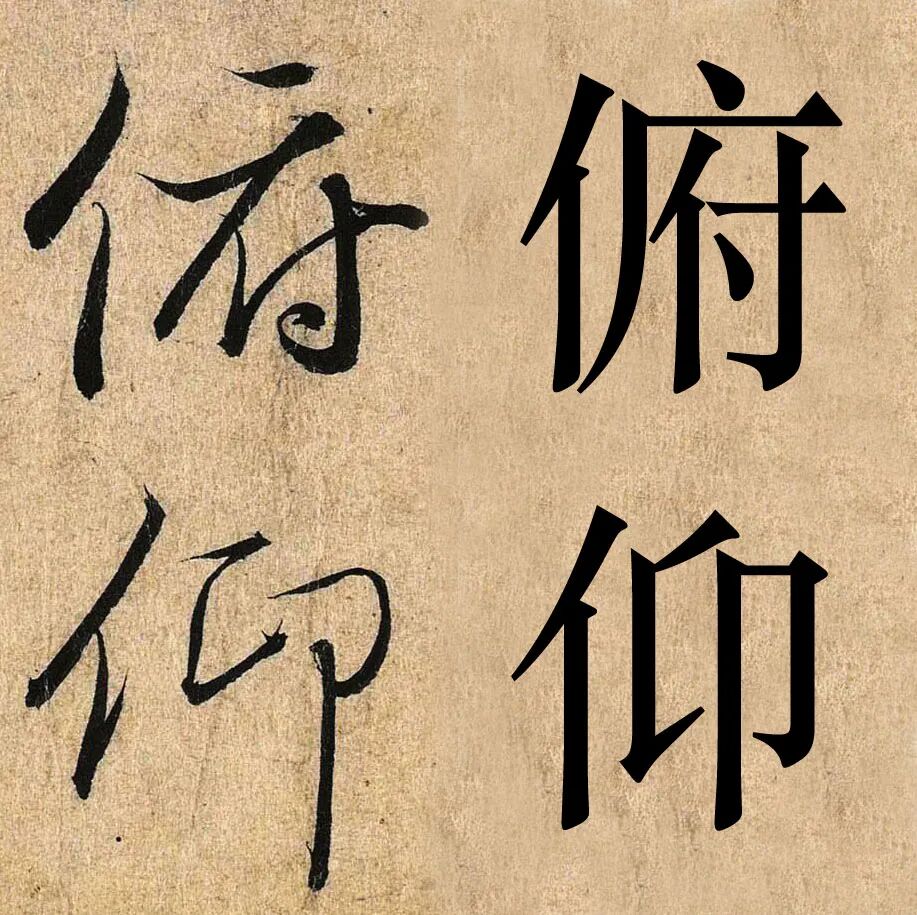 俯 俯
仰 仰